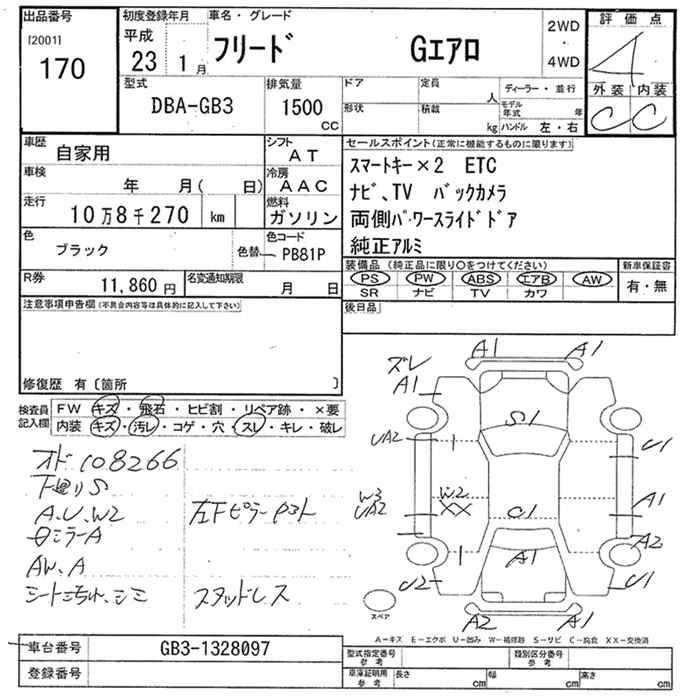 出品番号
[2001]
170
初度登録年月
平成
23 1月
車名・グレード
フリード Gエアロ
2WD
4WD
評価点
4
外装 内装
C C
型式
DBA-GB3
排気量
1500
CC
ドア
形状
定員
人
積載
kg
ディーラー・並行
モデル年式 年
ハンドル 左・右
車歴
自家用
シフト
AT
車検
年 月( 日)
冷房
AAC
走行
10万8千270 km
燃料
ガソリン
色
ブラック
色替
色コード
PB81P
R券
11,860円
名変通知期限
月 日
セールスポイント(正常に機能するものに限ります)
スマートキー×2 ETC
ナビ、TV バックカメラ
両側パワースライドドア
純正アルミ
装備品(純正品に限り○をつけてください)
PS PW ABS エアB AW
SR ナビ TV カワ
新車保証書
有・無
後日品
注意事項申告欄(不具合内容等は具体的に記入して下さい)
修復歴 有〔箇所 〕
検査員記入欄
FW キズ・飛石・ヒビ割・リペア跡・×要
内装 キズ・汚レ・コゲ・穴・スレ・キレ・破レ
オド 108266
下廻りS
A.U.W2
ミラーA
AW.A
シート シミ
左Fピラー
スタッドレス
ズレ
A1
A1
A1
S1
UA2
U1
W3
UA2
W2
XX
C1
A1
A2
A1
U2
U1
A2
A1
スペア
A-キズ E-エクボ U-凹み W-補修跡 S-サビ C-腐食 XX-交換済
車台番号
GB3-1328097
登録番号
型式指定番号
参考
類別区分番号
参考
車庫証明用
参考
長さ cm
幅 cm
高さ cm